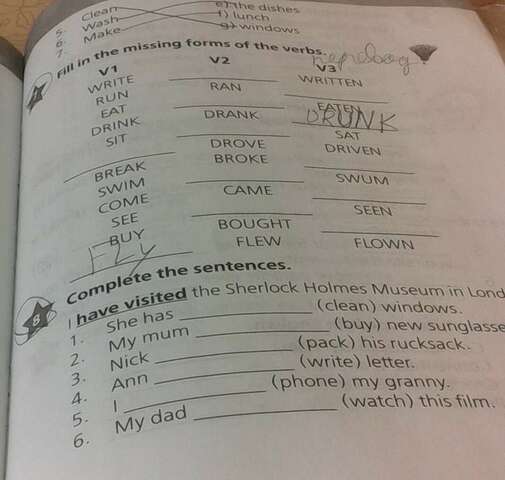 5. Clean e) the dishes
6. Wash f) lunch
7. Make g) windows
Fill in the missing forms of the verbs. перевод
V1 V2 V3
WRITE ________ WRITTEN
RUN RAN ________
EAT ________ EATEN
DRINK DRANK DRUNK
SIT ________ SAT
________ DROVE DRIVEN
BREAK BROKE ________
SWIM ________ SWUM
COME CAME ________
SEE ________ SEEN
BUY BOUGHT ________
FLY FLEW FLOWN
8 Complete the sentences.
I have visited the Sherlock Holmes Museum in Lond
1. She has ________ (clean) windows.
2. My mum ________ (buy) new sunglasse
3. Nick ________ (pack) his rucksack.
4. Ann ________ (write) letter.
5. I ________ (phone) my granny.
6. My dad ________ (watch) this film.